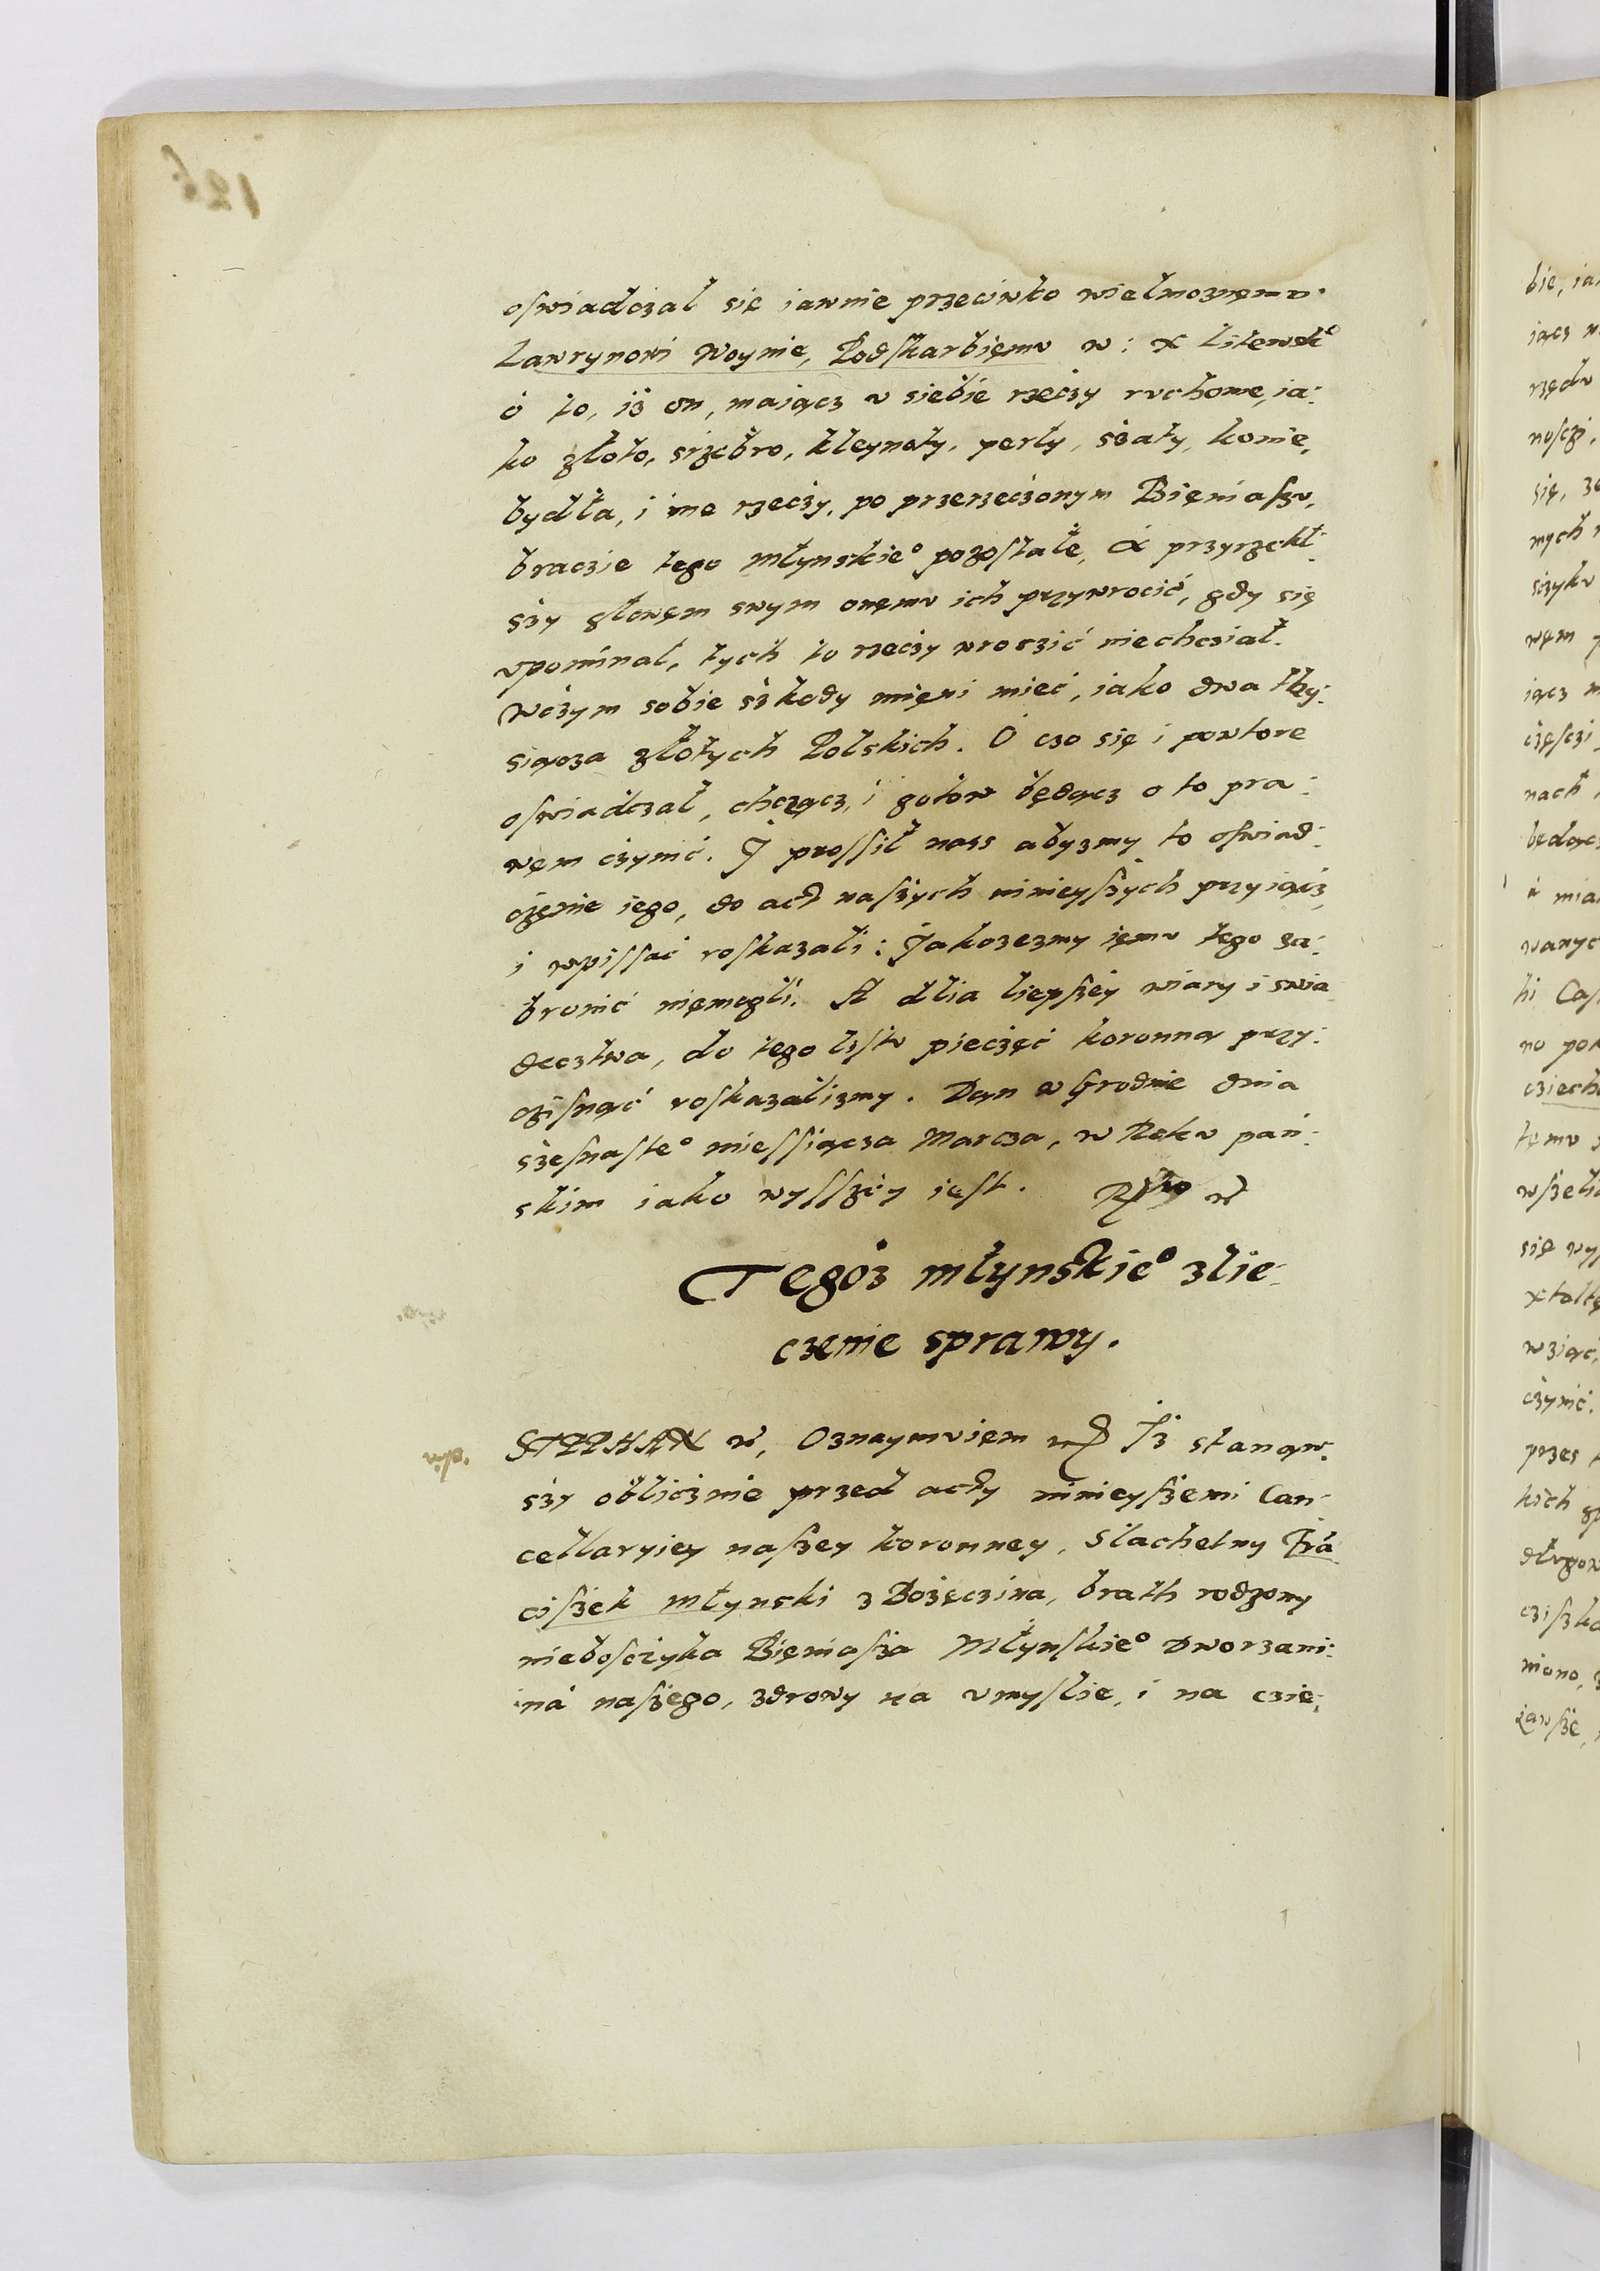 oswiadczał się iawnie przeciwko wielmoznęmu
Lawrynowi Woynie, Podskarbięmu w: x Litewskᵒ
ó to, iż on, maiącz v siebie rzeczy ruchome, ia:
ko złoto, srzebro, kleynoty, perły, száty, konie,
bydła, i ine rzeczy, po przerzeczonym Bięniaszu,
braczie tego Młynskieᵒ pozostałe, á przyrzekł:
szy słowęm swym onęmu ich przywrocić, gdy się
vpominał, tych to rzeczy wroczić niechciał.
Wczym sobie szkody mięni mieć, iako dwa thy:
siącza złotych Polskich. O czo się i powtore
oswiadczał, chcząncz, i gotow będącz o to pra:
węm czynić. J prossił nass abyzmy to oswiad:
częnie iego, do act naszych ninieyszych przyiąć,
i wpissać roskazali: Jakozezmy ięmu tego za:
bronić nięmogli. A dlia liepszey wiary i swia
decztwa, do tego listu pieczęć koronną przy:
czisnąć roskazalizmy. Dan w Grodnie dnia
szesnasteᵒ miessiącza Marcza, w Roku pań:
skim iako wysszey iest.
Tegoz młynskieᵒ zlie:
czenie sprawy.
STEPHAN etc, Oznaymuięm Jż stanąw:
szy obliczmie przed acty ninieyszemi Can:
cellaryiey naszey koronney, Slachetny Frá
ciszek Młynski z Bożęczina, brath rodzony
niebosczyka Bięniasza Młynskieᵒ Dworzani:
ná naszego, zdrowy na vmyslie, i na czie: